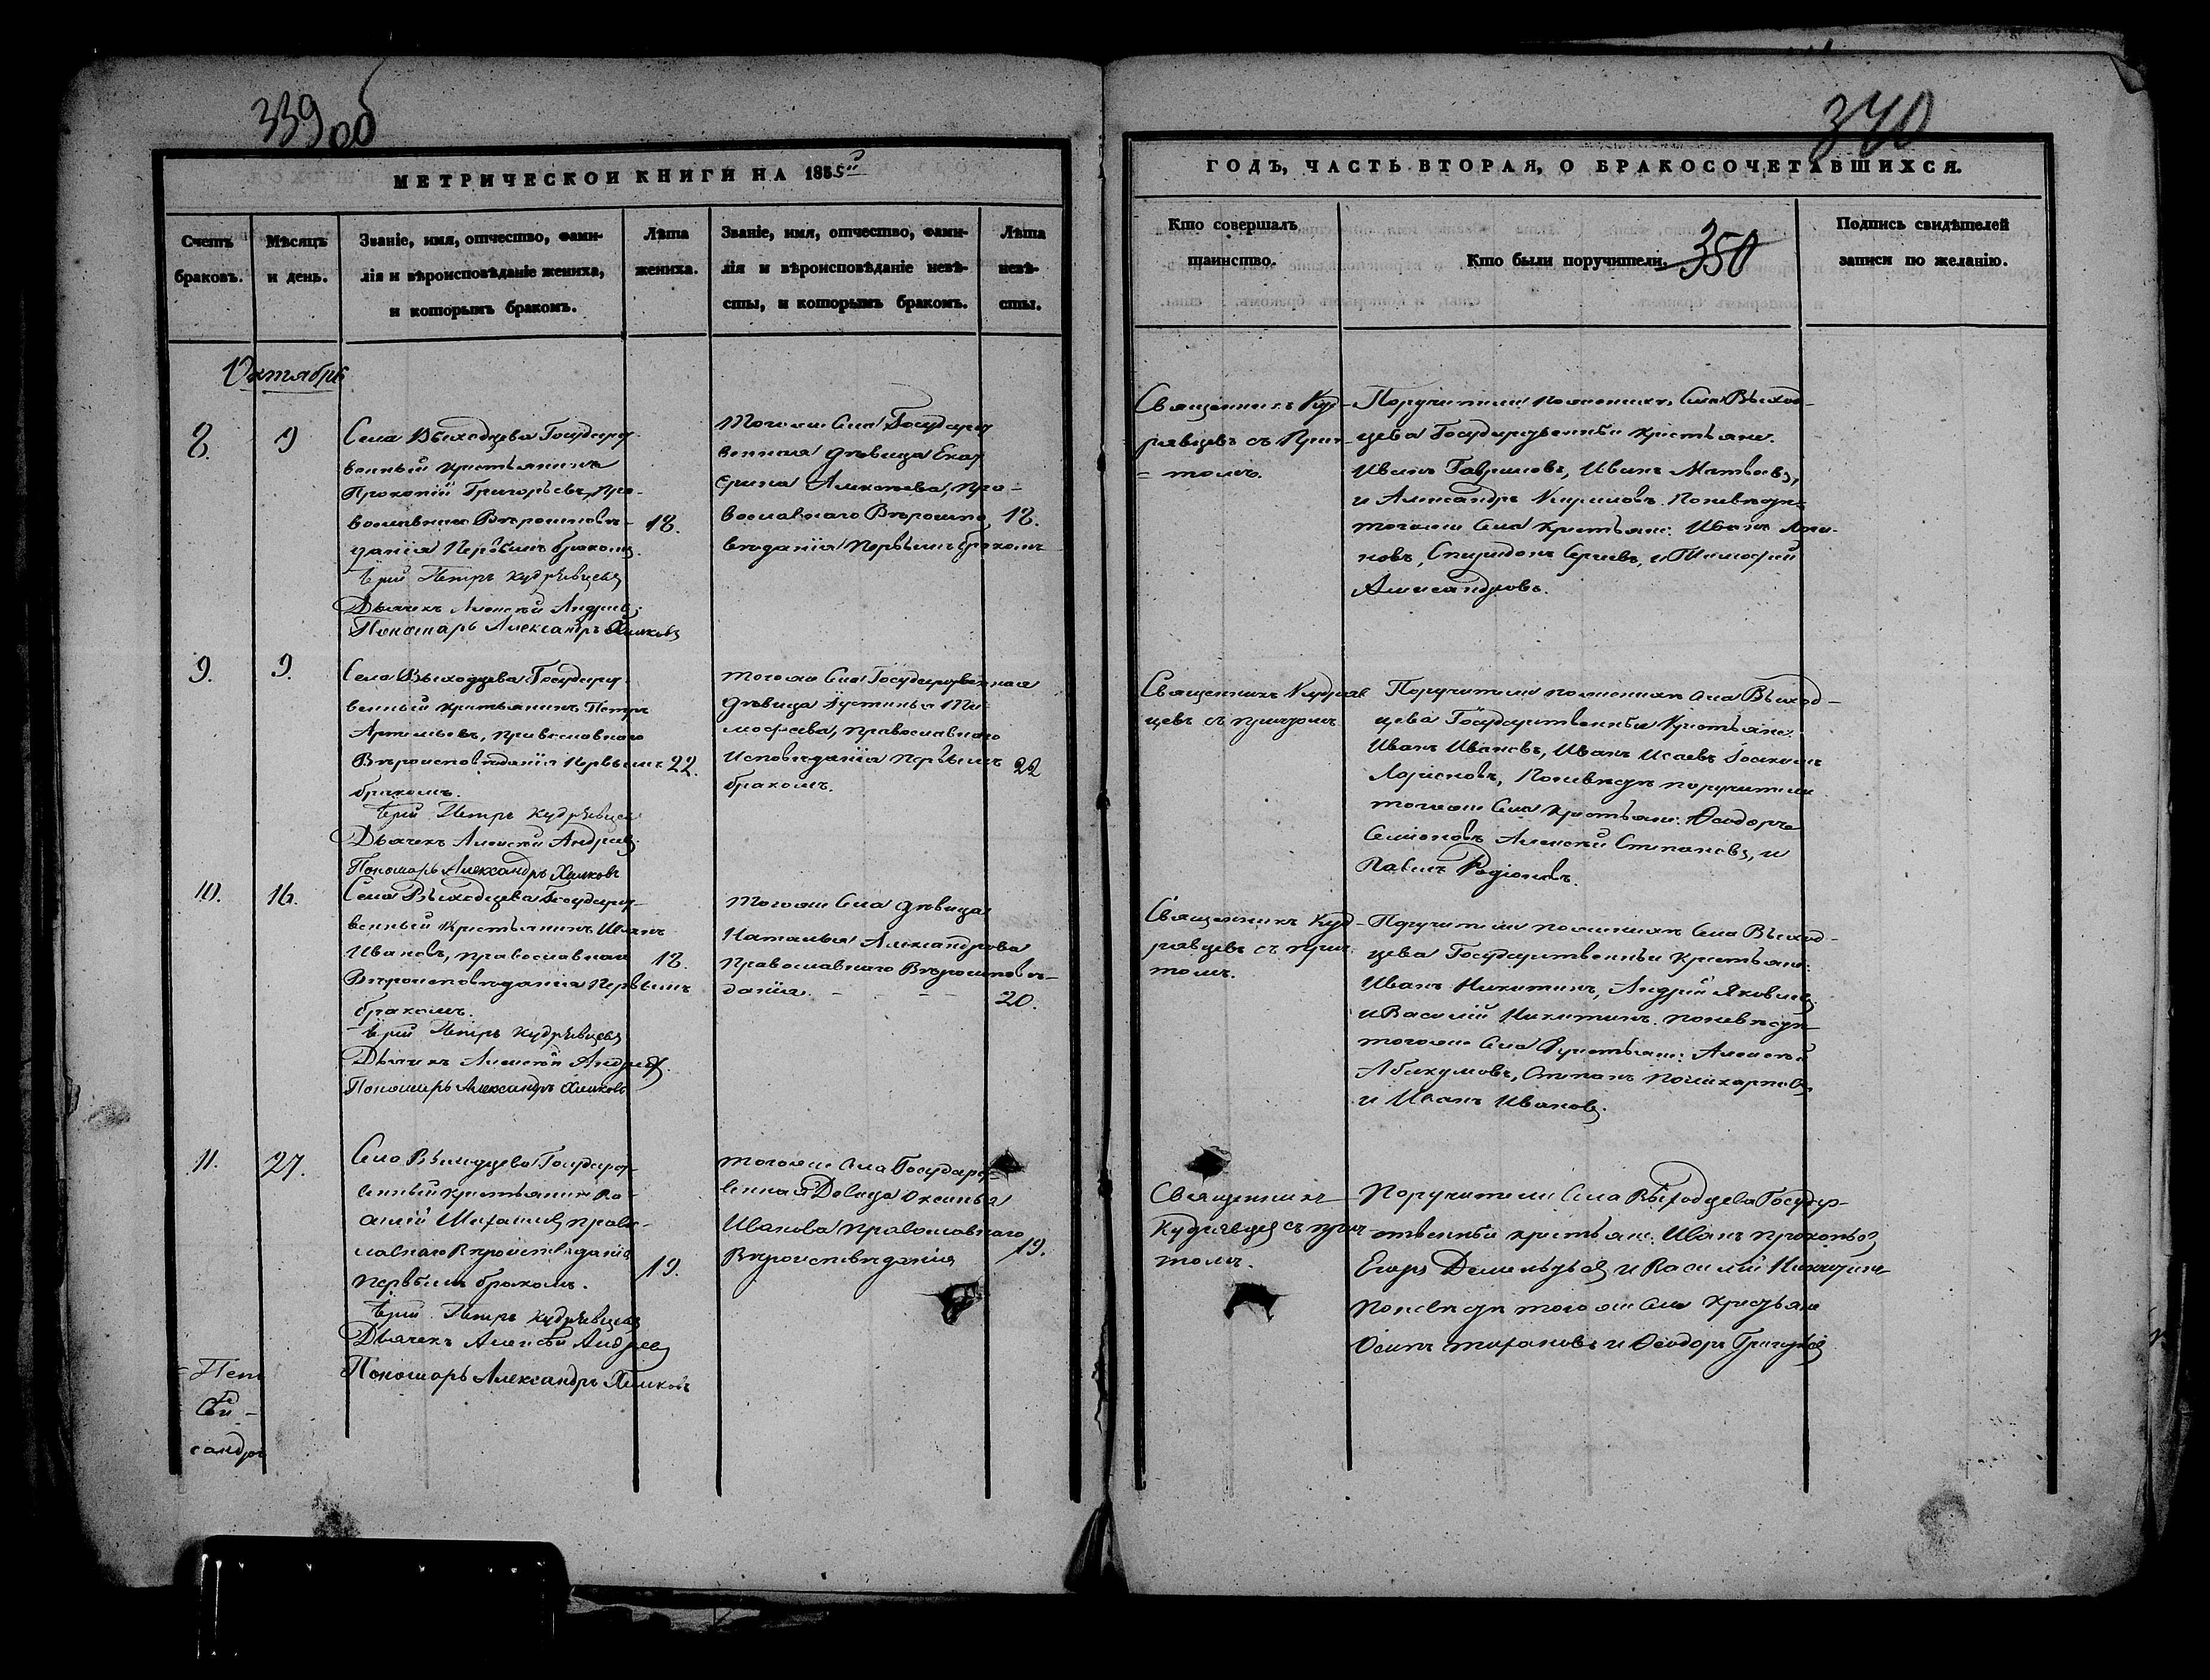 339 об
340
МЕТРИЧЕСКОЙ КНИГИ НА 1855й
ГОДЪ, ЧАСТЬ ВТОРАЯ, О БРАКОСОЧЕТАВШИХСЯ.
Счетъ
браковъ.
Мѣсяцъ
и день.
Званіе, имя, отчество, фами-
лія и вѣроисповѣданіе жениха,
и которымъ бракомъ.
Лѣта
жениха.
Званіе, имя, отчество, фами-
лія и вѣроисповѣданіе невѣ-
сты, и которымъ бракомъ.
Лѣта
невѣ-
сты.
Кто совершалъ
таинство.
Кто были поручители.
350
Подпись свидѣтелей
записи по желанію.
Октябрь
8.
9
Села Выходцева Государст
венный крестьянинъ
Прокопій Григорьевъ, пра-
вославнаго Вѣроисповѣ-
данія Первымъ бракомъ.
18.
Іерей Петръ Кудрявцевъ
Дьячекъ Алексѣй Андреевъ
Пономарь Александръ Хилковъ
Тогоже Села Государст
венная дѣвица Екат
ерина Алексѣева, пра-
вославнаго Вѣроиспо
вѣданія Первымъ бракомъ
18.
Священникъ Куд-
рявцевъ съ Прич-
томъ.
Поручители по женихѣ Села Выход-
цева Государственныи крестьяне.
Иванъ Гавриловъ, Иванъ Матвѣевъ,
и Александръ Кириловъ. По невѣстѣ
тогоже Села крестьяне: Иванъ
Спиридонъ Сергѣевъ, и Тимофей
Александровъ.
9.
9.
Села Выходцева Государст
венный крестьянинъ Петръ
Артемьевъ, православнаго
Вѣроисповѣданія Первымъ
бракомъ.
22.
Іерей Петръ Кудрявцевъ
Дьячекъ Алексѣй Андреевъ
Пономарь Александръ Хилковъ
тогоже Села Государственная
дѣвица Іустинья Ти-
мофеева, православнаго
Исповѣданія Первымъ
бракомъ.
22
Священникъ Кудряв
цевъ съ причтомъ
Поручители по женихѣ Села Выход-
цева Государственныи Крестьяне.
Иванъ Ивановъ, Иванъ Исаевъ
По невѣстѣ поручители
тогоже Села крестьяне: Ѳеодоръ
Семеновъ Алексѣй Степановъ, и
Павелъ Родіоновъ.
10.
16.
Села Выходцева Государст
венный Крестьянинъ Иванъ
Ивановъ, православнаго
Вѣроисповѣданія Первымъ
бракомъ.
18.
Іерей Петръ Кудрявцевъ
Дьячекъ Алексѣй Андреевъ
Пономарь Александръ Хилковъ
тогоже Села дѣвица
Наталья Александрова
Православнаго Вѣроисповѣ-
данія.
20.
Священникъ Куд-
рявцевъ съ прич
томъ.
Поручители по женихѣ Села Выход-
цева Государственныи крестьяне.
Иванъ Никитинъ, Андрей Яковлевъ
и Василій Никитинъ. по невѣстѣ
тогоже Села Крестьяне: Алексѣй
Абакумовъ, Степанъ Поликарповъ
и Иванъ Ивановъ.
11.
27.
Села Выходцева Государст
венный крестьянинъ
православнаго
Вѣроисповѣданія
первымъ бракомъ.
19.
Іерей Петръ Кудрявцевъ
Дьячекъ Алексѣй Андреевъ
Пономарь Александръ Хилковъ
тогоже Села Государст
венная Девица Оксинья
Иванова православнаго
Вѣроисповѣданія
19.
Священникъ
Кудрявцевъ съ прич
томъ.
Поручители Села Выходцева Государ-
ственныи крестьяне: Иванъ Прокопьев
Егоръ Дементьев и Василий Никитинъ
По невѣстѣ того же Села крестьяне
Осипъ и Ѳеодоръ Григорьев
Пет
сандръ